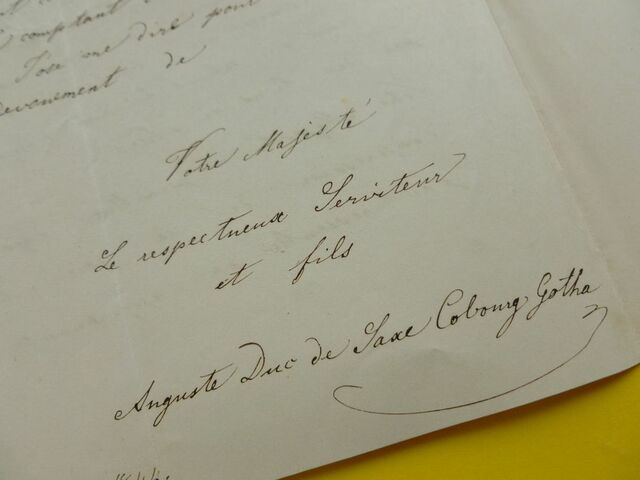 comptant
J'ose me dire pour
devouement de
Votre Majesté
Le respectueux Serviteur
et fils
Auguste Duc de Saxe Cobourg Gotha